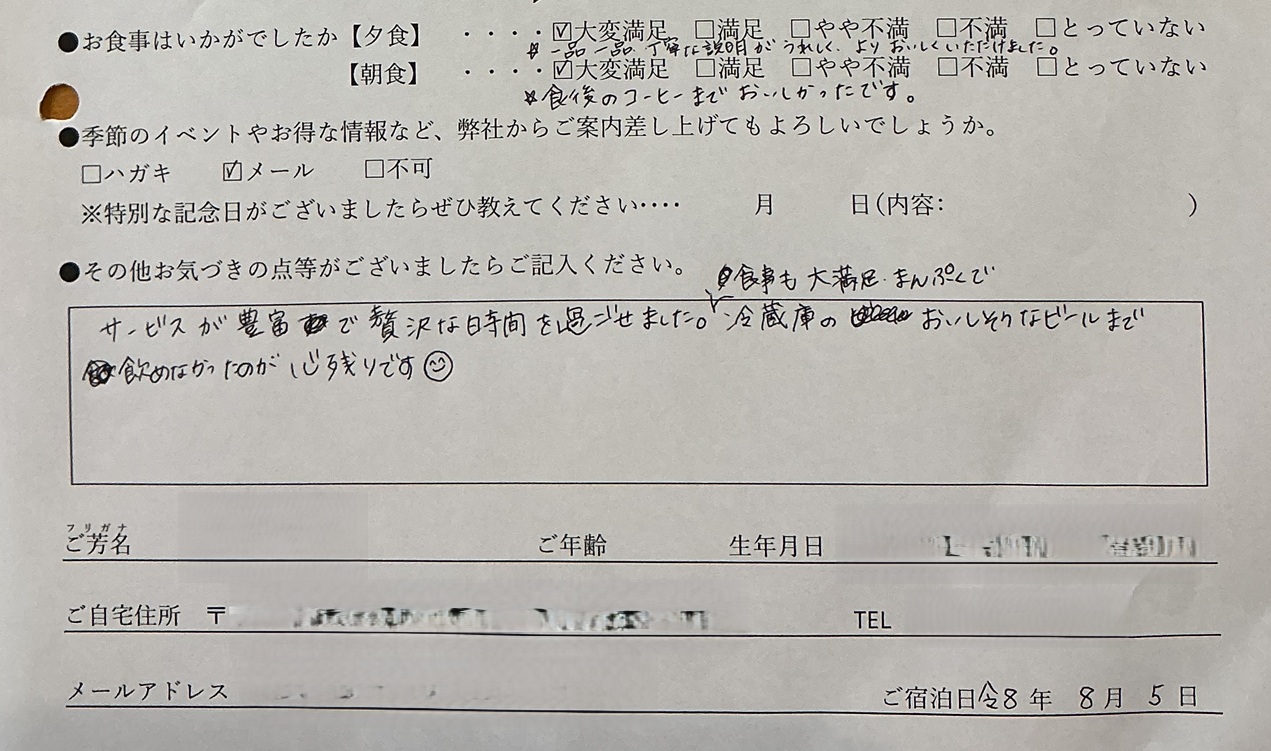 ●お食事はいかがでしたか【夕食】 ・・・・☑大変満足 □満足 □やや不満 □不満 □とっていない
※一品一品 丁寧な説明がうれしく、よりおいしくいただけました。
【朝食】 ・・・・☑大変満足 □満足 □やや不満 □不満 □とっていない
※食後のコーヒーまでおいしかったです。
●季節のイベントやお得な情報など、弊社からご案内差し上げてもよろしいでしょうか。
□ハガキ ☑メール □不可
※特別な記念日がございましたらぜひ教えてください‥‥ 月 日(内容: )
●その他お気づきの点等がございましたらご記入ください。
食事も大満足.まんぷくで
サービスが豊富で贅沢な時間を過ごせました。冷蔵庫のおいしそうなビールまで
飲めなかったのが心残りです☺
フリガナ
ご芳名 ご年齢 生年月日
ご自宅住所 〒 TEL
メールアドレス ご宿泊日 令8年 8月 5日